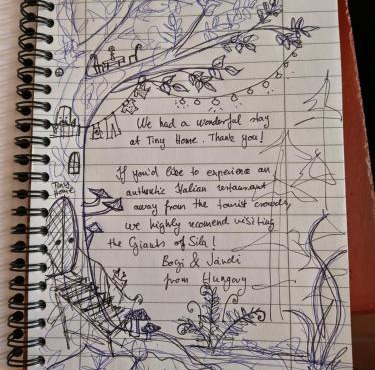 We had a wonderful stay
at Tiny Home. Thank you!
Tiny
Home
If you'd like to experience an
authentic Italian restaurant
away from the tourist crowds,
we highly recomend visiting
the Giants of Sila!
Bogi & Jándi
from Hungary